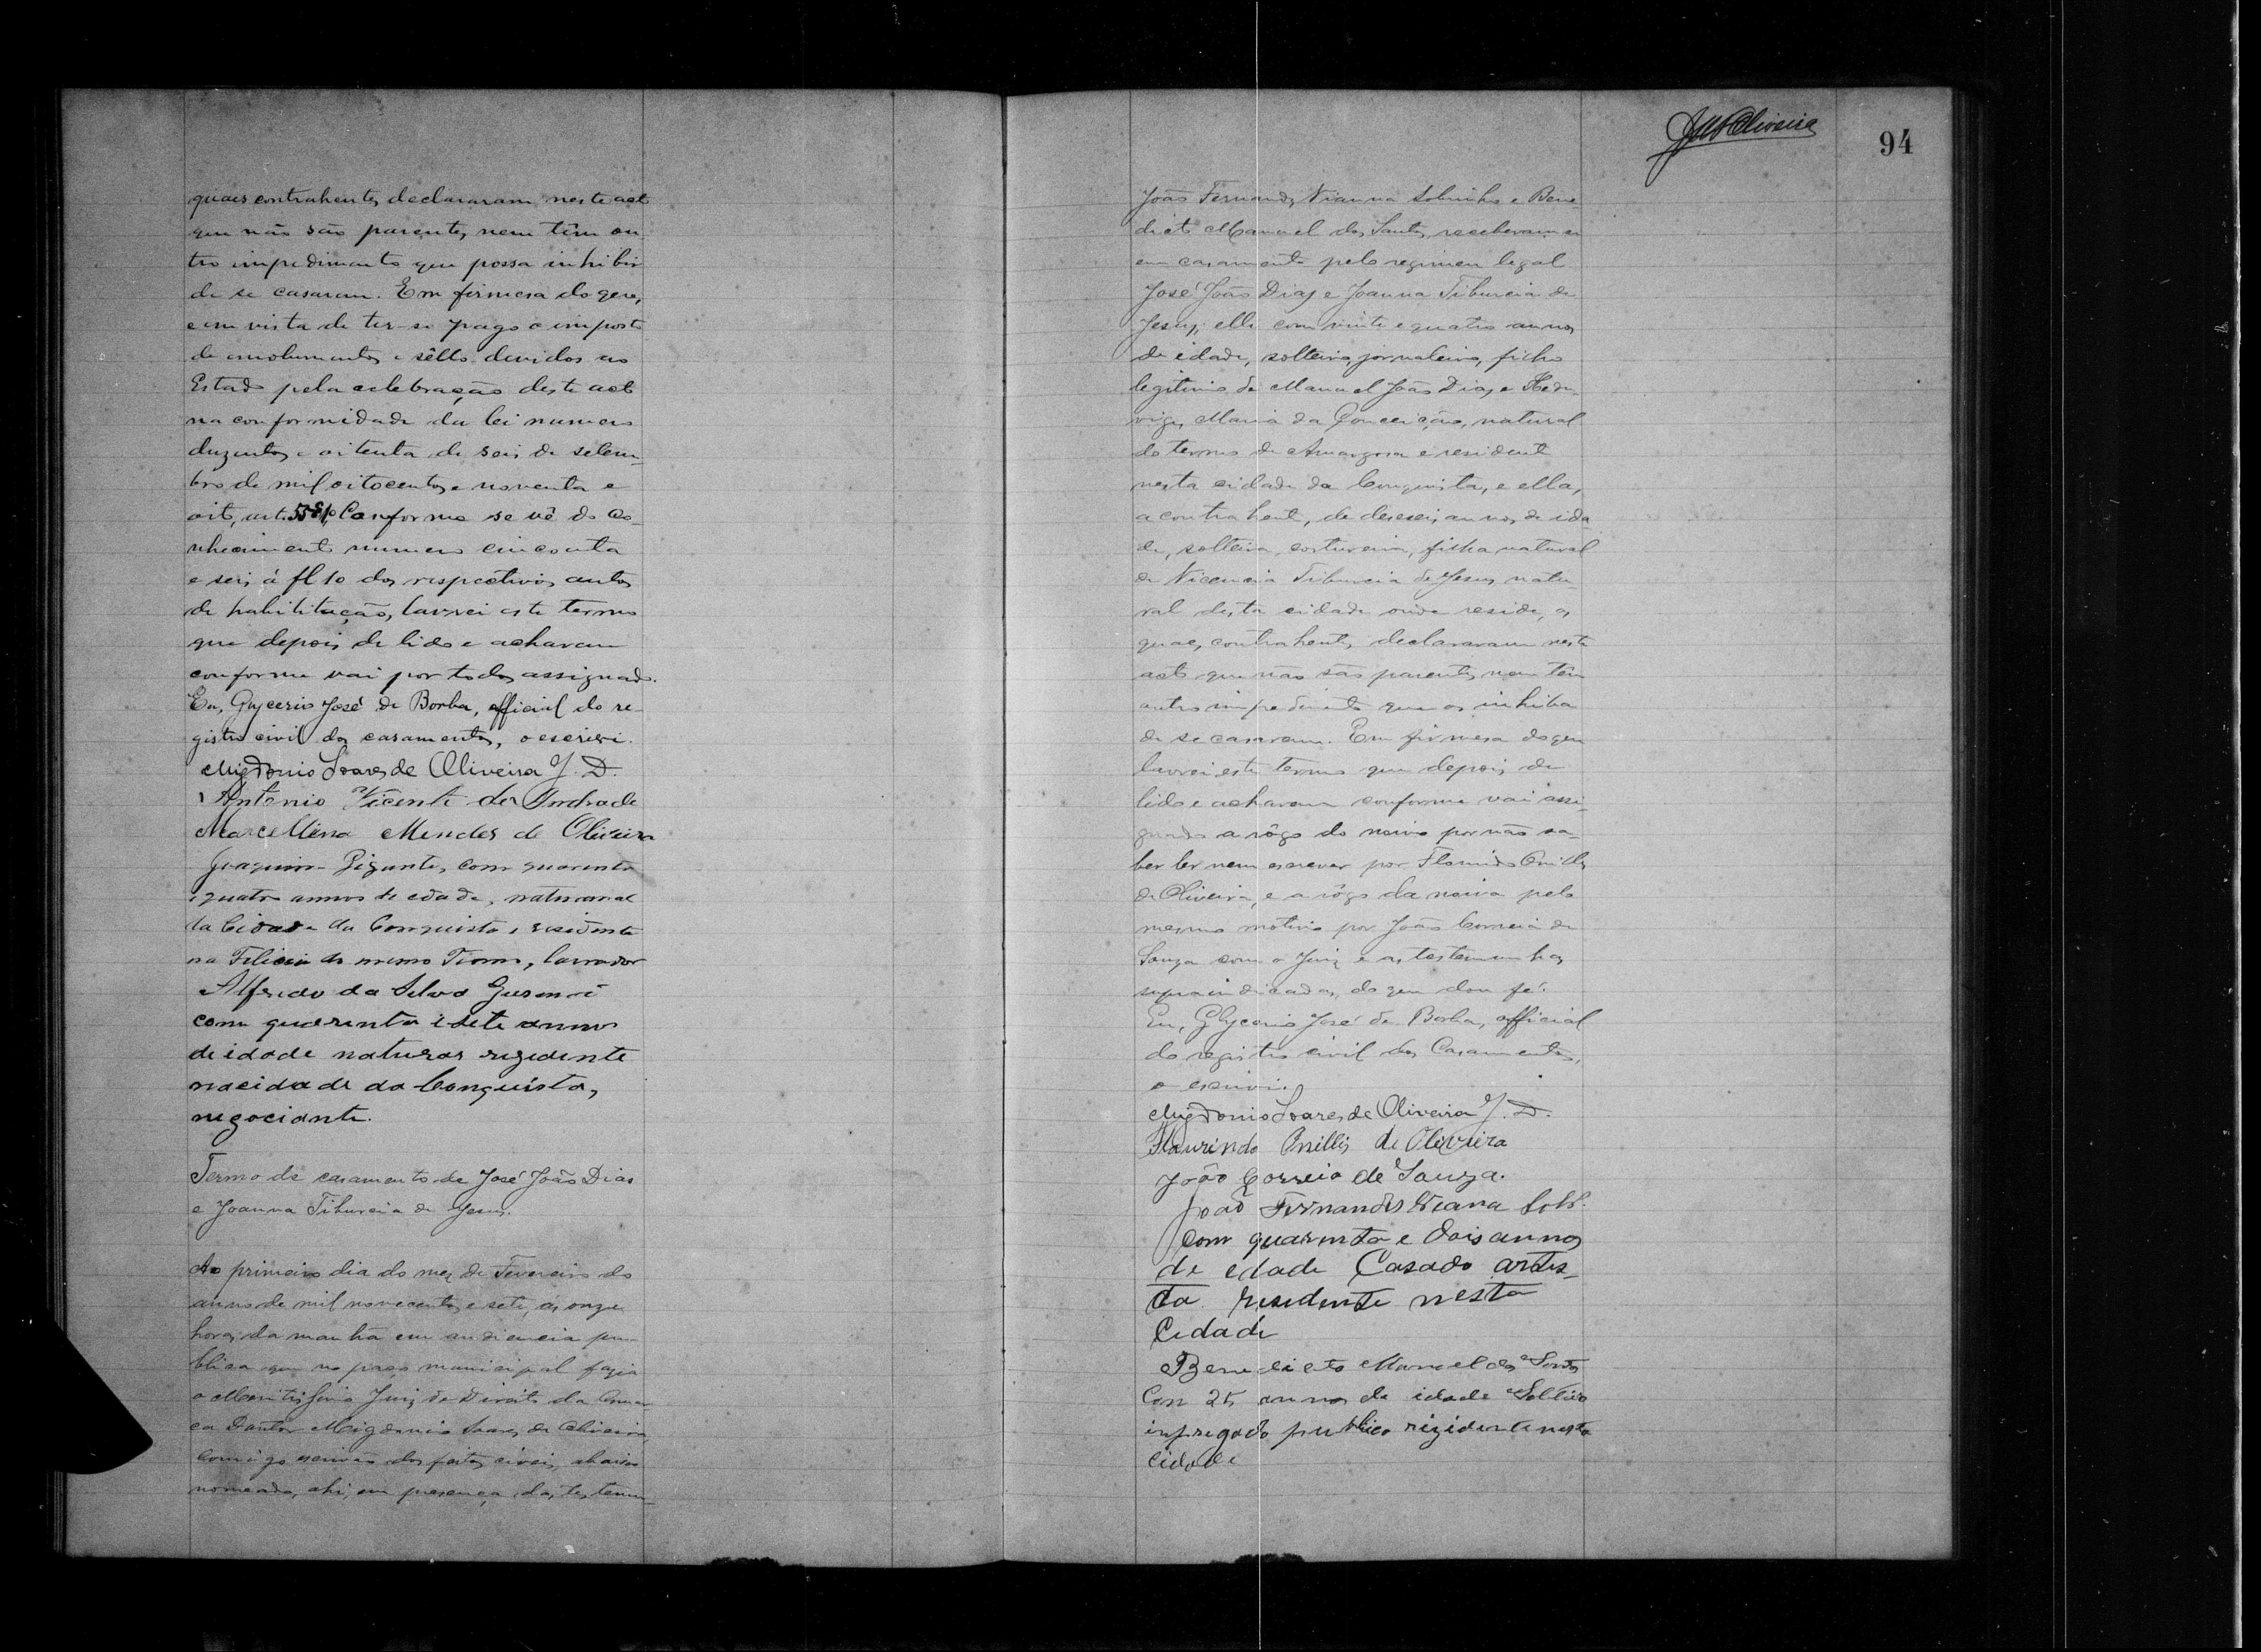 quaes contrahentes declararam neste acto
que não são parentes nem têm ou
tro impedimento que possa inhibir
de se casarem. Em firmesa do que,
e em vista de ter-se pago o imposto
de emolumentos e sêllo devidos ao
Estado pela celebração deste acto
na conformidade da lei numero
duzentos e oitenta de seis de setem-
bro de mil oitocentos e noventa e
oito, art. Conforme se vê do co-
nhecimento numero cincoenta
e seis á fl 10 dos respectivos autos
de habilitação, lavrei este termo
que depois de lido e acharam
conforme vai por todos assignado.
Eu, Glycerio José de Borba, official do re-
gistro civil dos casamentos, o escrevi.
Migdonio Soares de Oliveira J. D.
Antonio Vicente de Andrade
Marcellina Mendes de Oliveira
Joaquim Pigunte, com quarenta
e quatro annos de edade, natural
da Cidade da Conquista, residente
na do mesmo Termo, lavrador
Alfredo da Silva Gusmão
com quarenta i sete annos
de idade naturar rezedente
nacidade da Conquista,
negociante.
Termo de casamento de José João Dias
e Joanna Tiburcia de Jesus.
Ao primeiro dia do mez de Fevereiro do
anno de mil novecentos e sete, ás onze
horas da manhã em audiencia pu-
blica que no paço municipal fazia
o Meritissimo Juiz de Direito da Comar
ca Doutor Migdonio Soares de Oliveira,
comigo escrivão dos feitos civeis, abaixo
nomeado, ahi, em presença das testemu-
94
João Fernandes Vianna Sobrinho e Bene-
dicto Manuel dos Santos, receberam-se
em casamento pelo regimen legal
José João Dias e Joanna Tiburcia de
Jesus; elle com vinte e quatro annos
de idade, solteiro, jornaleiro, filho
legitimo de Manuel João Dias e Hedu-
viges Maria da Conceição, natural
do termo de Amargosa e residente
nesta cidade da Conquista, e ella,
a contrahente, de deseseis annos de ida-
de, solteira, costureira, filha natural
de Vicencia Tiburcia de Jesus, natu-
ral desta cidade onde reside, os
quaes contrahentes declararam neste
acto que não são parentes nem têm
outro impedimento que os inhiba
de se casarem. Em firmesa do que
lavrei este termo que depois de
lido e acharam conforme vai assi-
gnado a rôgo do noivo por não sa-
ber ler nem escrever por Flaurindo Onillis
de Oliveira, e a rôgo da noiva pelo
mesmo motivo por João Correia de
Souza com o Juiz e as testemunhas
supraindicadas, do que dou fé.
Eu, Glycerio José de Borba, official
do registro civil dos Casamentos,
o escrevi.
Migdonio Soares de Oliveira J. D.
Flaurindo Onillis de Oliveira
João Correia de Souza.
João Fernandes Vianna Sobr.
com quarenta e dois annos
de edade Casado artis-
ta residente nesta
Cidade
Benedicto Manuel dos Santos
Con 25 annos de idade Soltiro
impregado publico rezidente nesta
Cidade